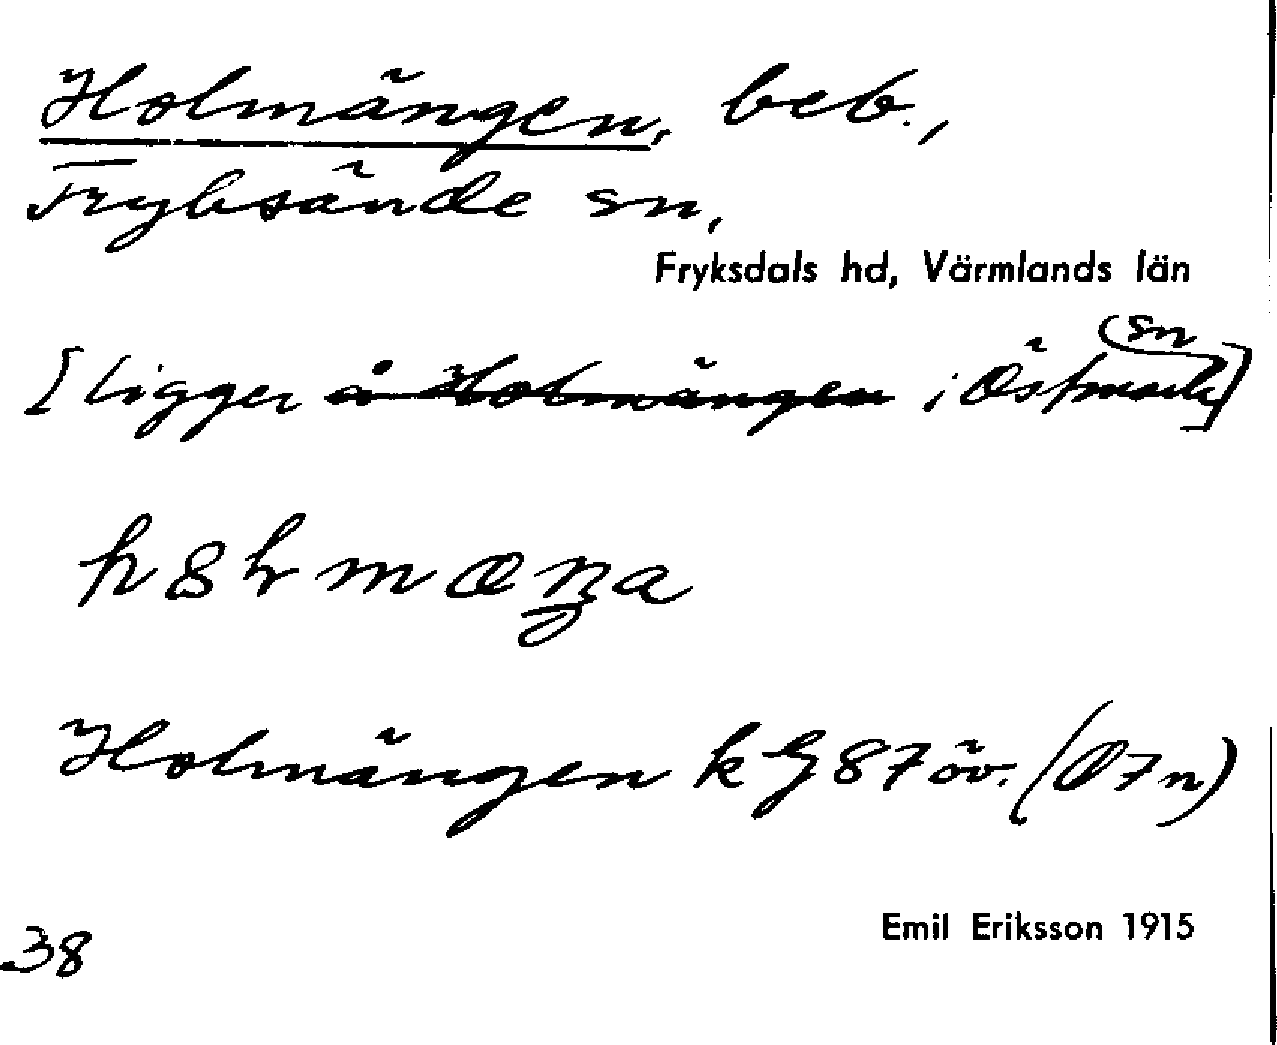 Holmängen, beb.,
Fryksände sn,
Fryksdals hd, Värmlands län
[ligger å Holmängen i Östmark sn]
Holmängen k G 87 öv. (Ø7n)
Emil Eriksson 1915
38